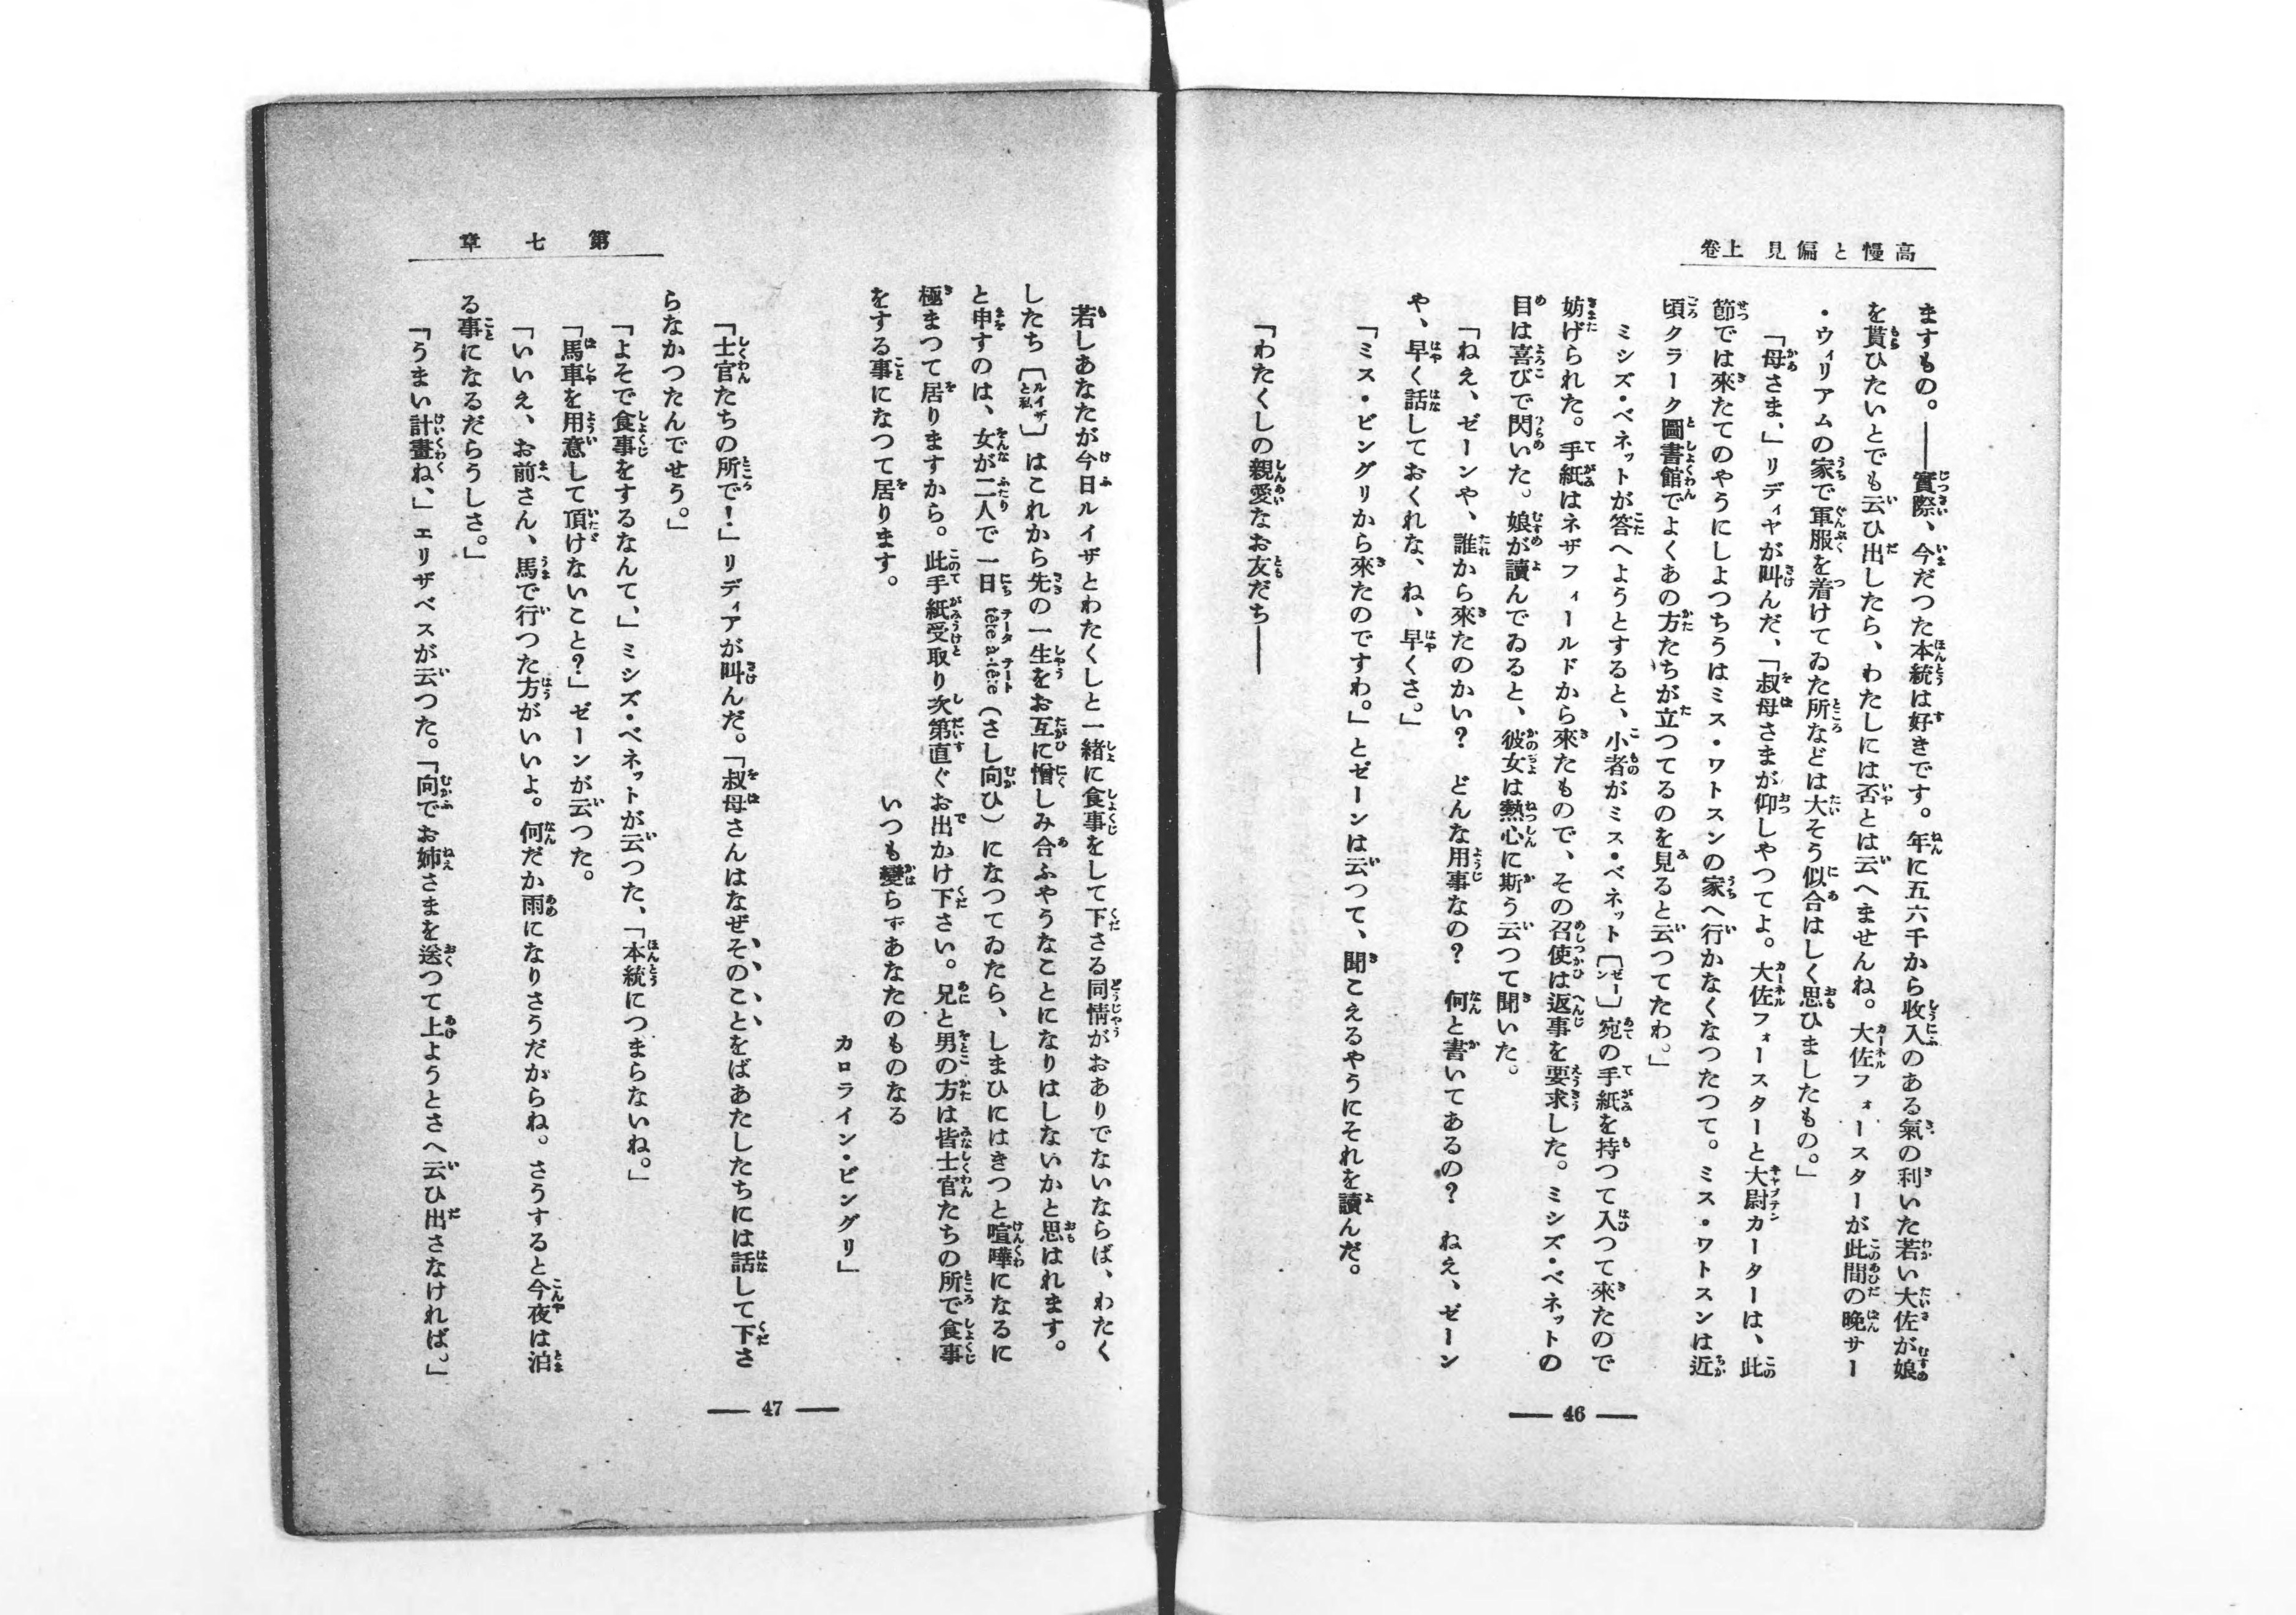 高慢と偏見 上卷
ますもの。――實際、今だつた本統は好きです。年に五六千から收入のある氣の利いた若い大佐が娘
を貰ひたいとでも云ひ出したら、わたしには否とは云へませんね。大佐フォースターが此間の晩サー
・ウィリアムの家で軍服を着けてゐた所などは大そう似合はしく思ひましたもの。」
「母さま、」リディヤが叫んだ、「叔母さまが仰しやつてよ。大佐フォースターと大尉カーターは、此
節では來たてのやうにしよつちうはミス・ワトスンの家へ行かなくなつたつて。ミス・ワトスンは近
頃クラーク圖書館でよくあの方たちが立つてるのを見ると云つてたわ。」
ミシズ・ベネットが答へようとすると、小者がミス・ベネット〔ゼーン〕宛の手紙を持つて入つて來たので
妨げられた。手紙はネザフィールドから來たもので、その召使は返事を要求した。ミシズ・ベネットの
目は喜びで閃いた。娘が讀んでゐると、彼女は熱心に斯う云つて聞いた。
「ねえ、ゼーンや、誰から來たのかい? どんな用事なの? 何と書いてあるの? ねえ、ゼーン
や、早く話しておくれな、ね、早くさ。」
「ミス・ビングリから來たのですわ。」とゼーンは云つて、聞こえるやうにそれを讀んだ。
「わたくしの親愛なお友だち――
― 46 ―
第七章
若しあなたが今日ルイザとわたくしと一緒に食事をして下さる同情がおありでないならば、わたく
したち〔ルイザと私〕はこれから先の一生をお互に憎しみ合ふやうなことになりはしないかと思はれます。
と申すのは、女が二人で一日 tête a-tête (さし向ひ)になつてゐたら、しまひにはきつと喧嘩になるに
極まつて居りますから。此手紙受取り次第直ぐお出かけ下さい。兄と男の方は皆士官たちの所で食事
をする事になつて居ります。
いつも變らずあなたのものなる
カロライン・ビングリ」
「士官たちの所で!」リディアが叫んだ。「叔母さんはなぜそのことをばあたしたちには話して下さ
らなかつたんでせう。」
「よそで食事をするなんて、」ミシズ・ベネットが云つた、「本統につまらないね。」
「馬車を用意して頂けないこと?」ゼーンが云つた。
「いいえ、お前さん、馬で行つた方がいいよ。何だか雨になりさうだからね。さうすると今夜は泊
る事になるだらうしさ。」
「うまい計畫ね、」エリザベスが云つた。「向でお姉さまを送つて上ようとさへ云ひ出さなければ。」
― 47 ―